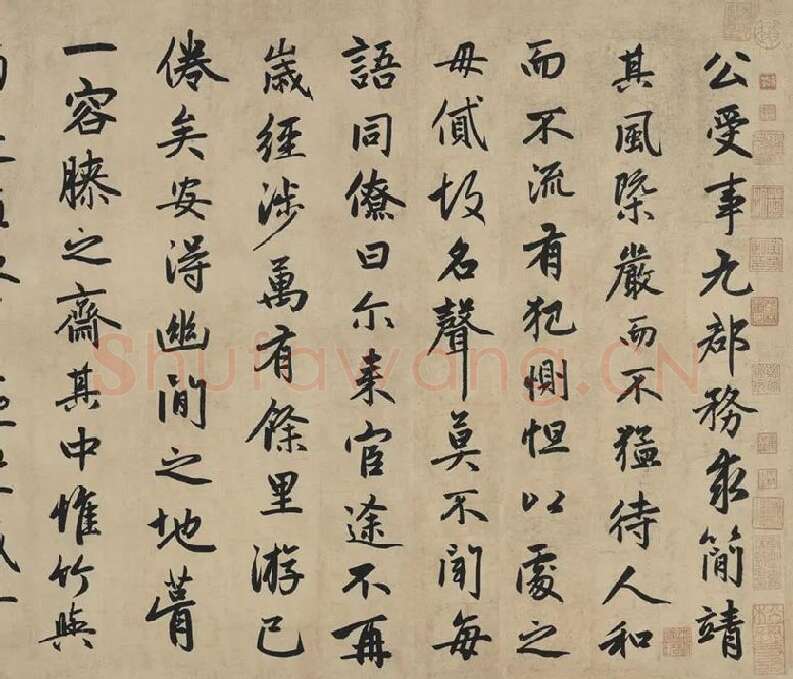 公受事九郡務求簡靖
其風槩嚴而不猛待人和
而不流有犯惻怛以處之
毋貣故名聲莫不聞每
語同僚曰尓来宦途不再
歲經涉萬有餘里游已
倦矣安得幽閒之地葺
一容膝之齋其中惟竹與
Shufawang.CN